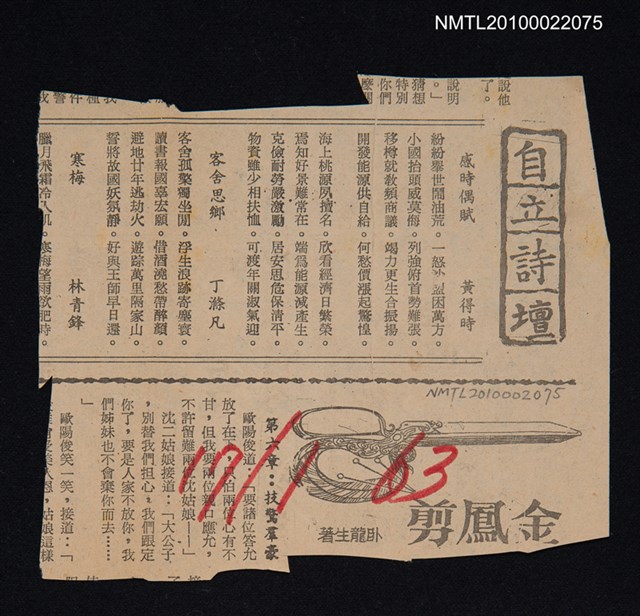 NMTL20100022075
說他
了。
說明
。」
猜想
特別
你們
麼關
自立詩壇
感時偶賦　黃得時
紛紛舉世鬧油荒。一怒
盟困萬方。
小國抬頭威莫侮。列強俯首勢難張。
移樽就教頻商議。竭力更生合振揚。
開發能源供自給。何愁價漲起驚惶。
海上桃源夙擅名。欣看經濟日繁榮。
焉知好景難常在。端爲能源減產生。
克儉耐勞嚴激勵。居安思危保清平。
物資雖少相扶恤。可渡年關淑氣迎。
客舍思鄉　丁滌凡
客舍孤檠獨坐閒。浮生浪跡寄塵寰。
讀書報國辜宏願。借酒澆愁帶醉顏。
避地廿年逃劫火。遊踪萬里隔家山。
誓將故國妖氛靜。好與王師早日還。
寒梅　林青鋒
臘月飛霜冷入肌。寒梅望雨欲肥時。
NMTL2010002075
金鳳剪
臥龍生著
17/1 63
第六章：技驚羣豪
歐陽俊道：「要諸位答允
放了在
只怕兩位心有不
甘，但我要兩位親口應允，
不許留難兩位沈姑娘——」
沈二姑娘接道：「大公子
，別替我們担心。我們跟定
你了，要是人家不放你，我
們姊妹也不會棄你而去……
」
歐陽俊笑一笑，接道：「
姑娘這樣